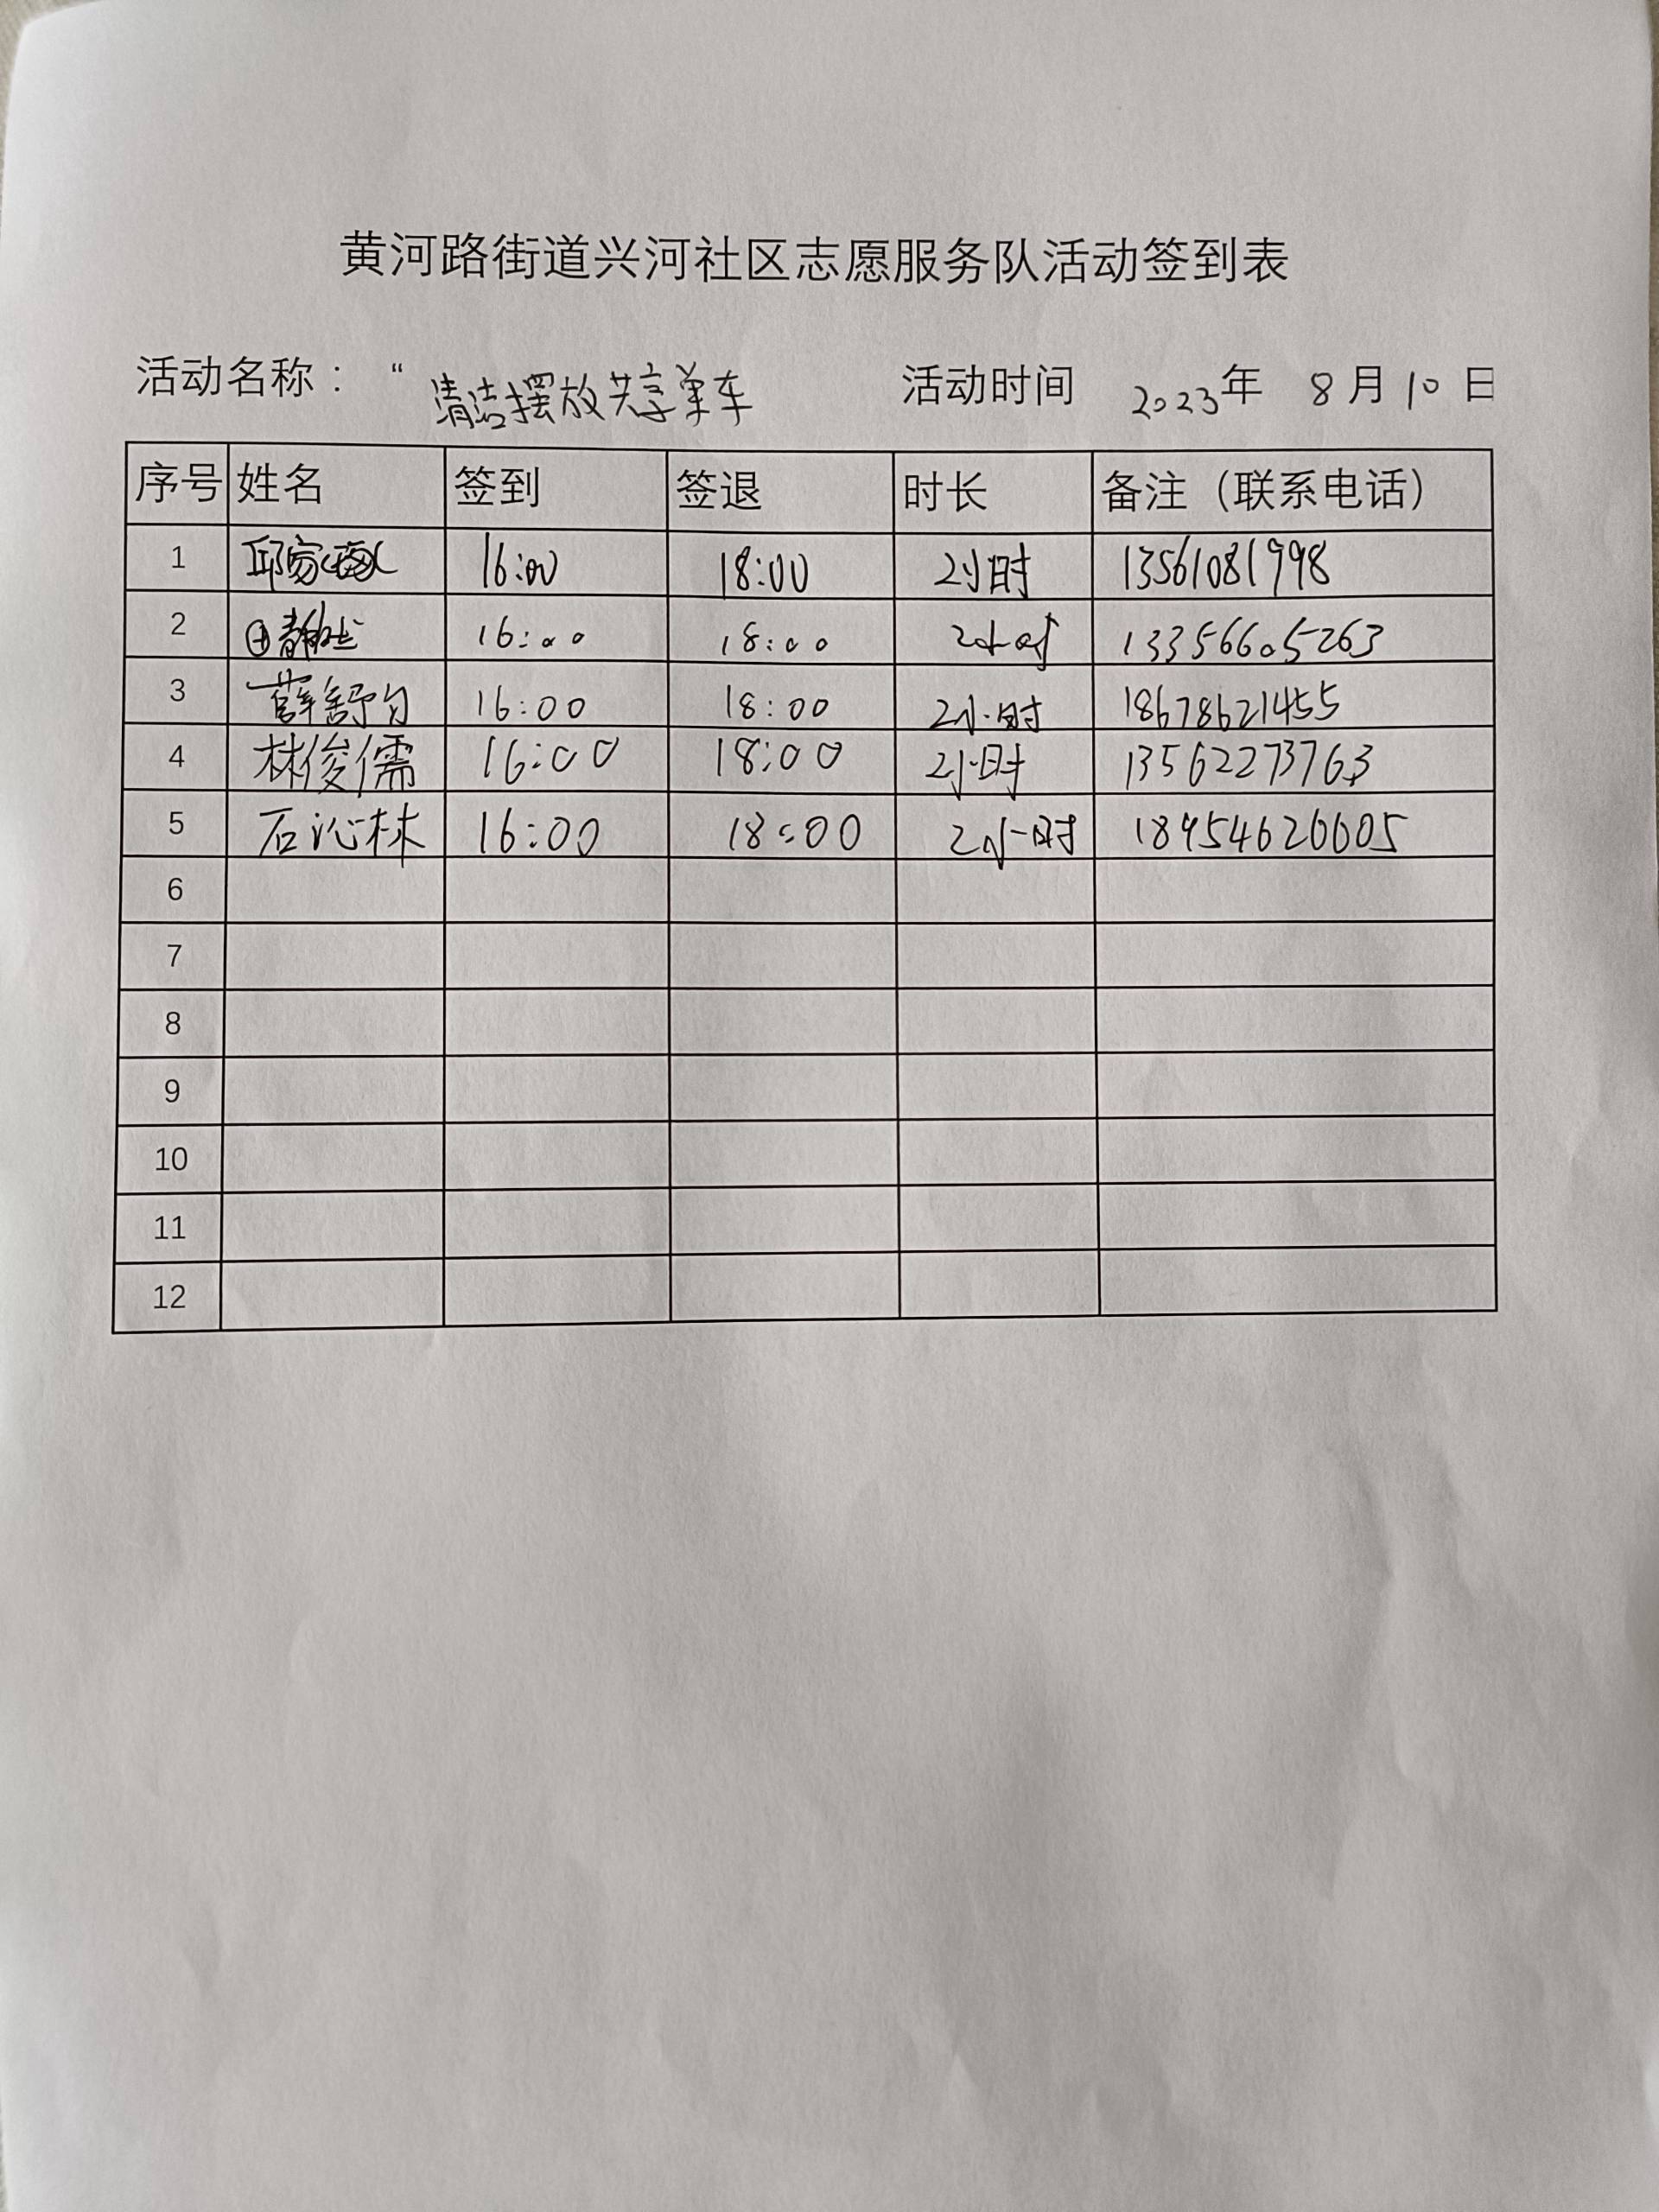 黄河路街道兴河社区志愿服务队活动签到表
活动名称：“清洁摆放共享单车 活动时间 2023年 8月10日
序号 姓名 签到 签退 时长 备注（联系电话）
1 邱家 16:00 18:00 2小时 13561081998
2 田静 16:00 18:00 2小时 13356605263
3 薛舒匀 16:00 18:00 2小时 18678621455
4 林俊儒 16:00 18:00 2小时 13562273763
5 石沁林 16:00 18:00 2小时 18954620605
6
7
8
9
10
11
12